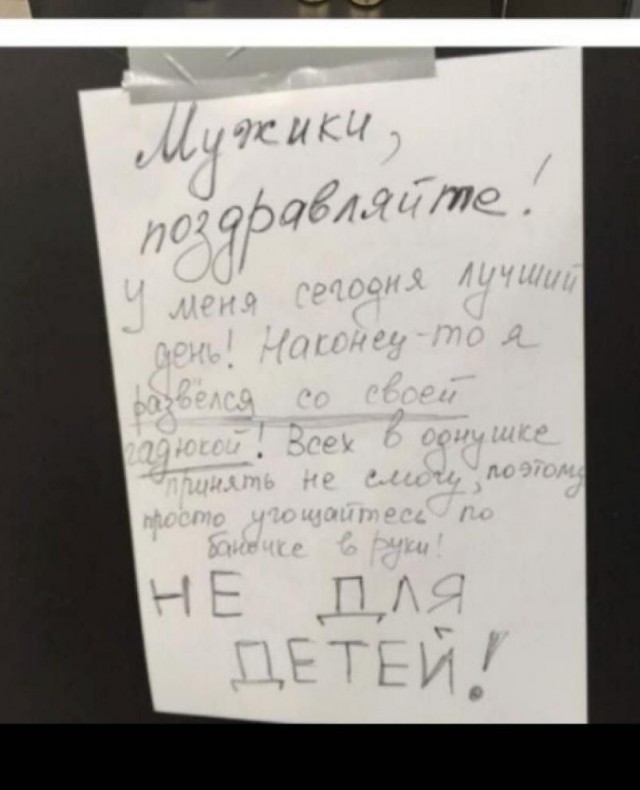 Мужики,
поздравляйте!
У меня сегодня лучший
день! Наконец-то я
развёлся со своей
гадюкой! Всех в однушке
принять не смогу, поэтому
просто угощайтесь по
баночке в руки!
НЕ ДЛЯ
ДЕТЕЙ!